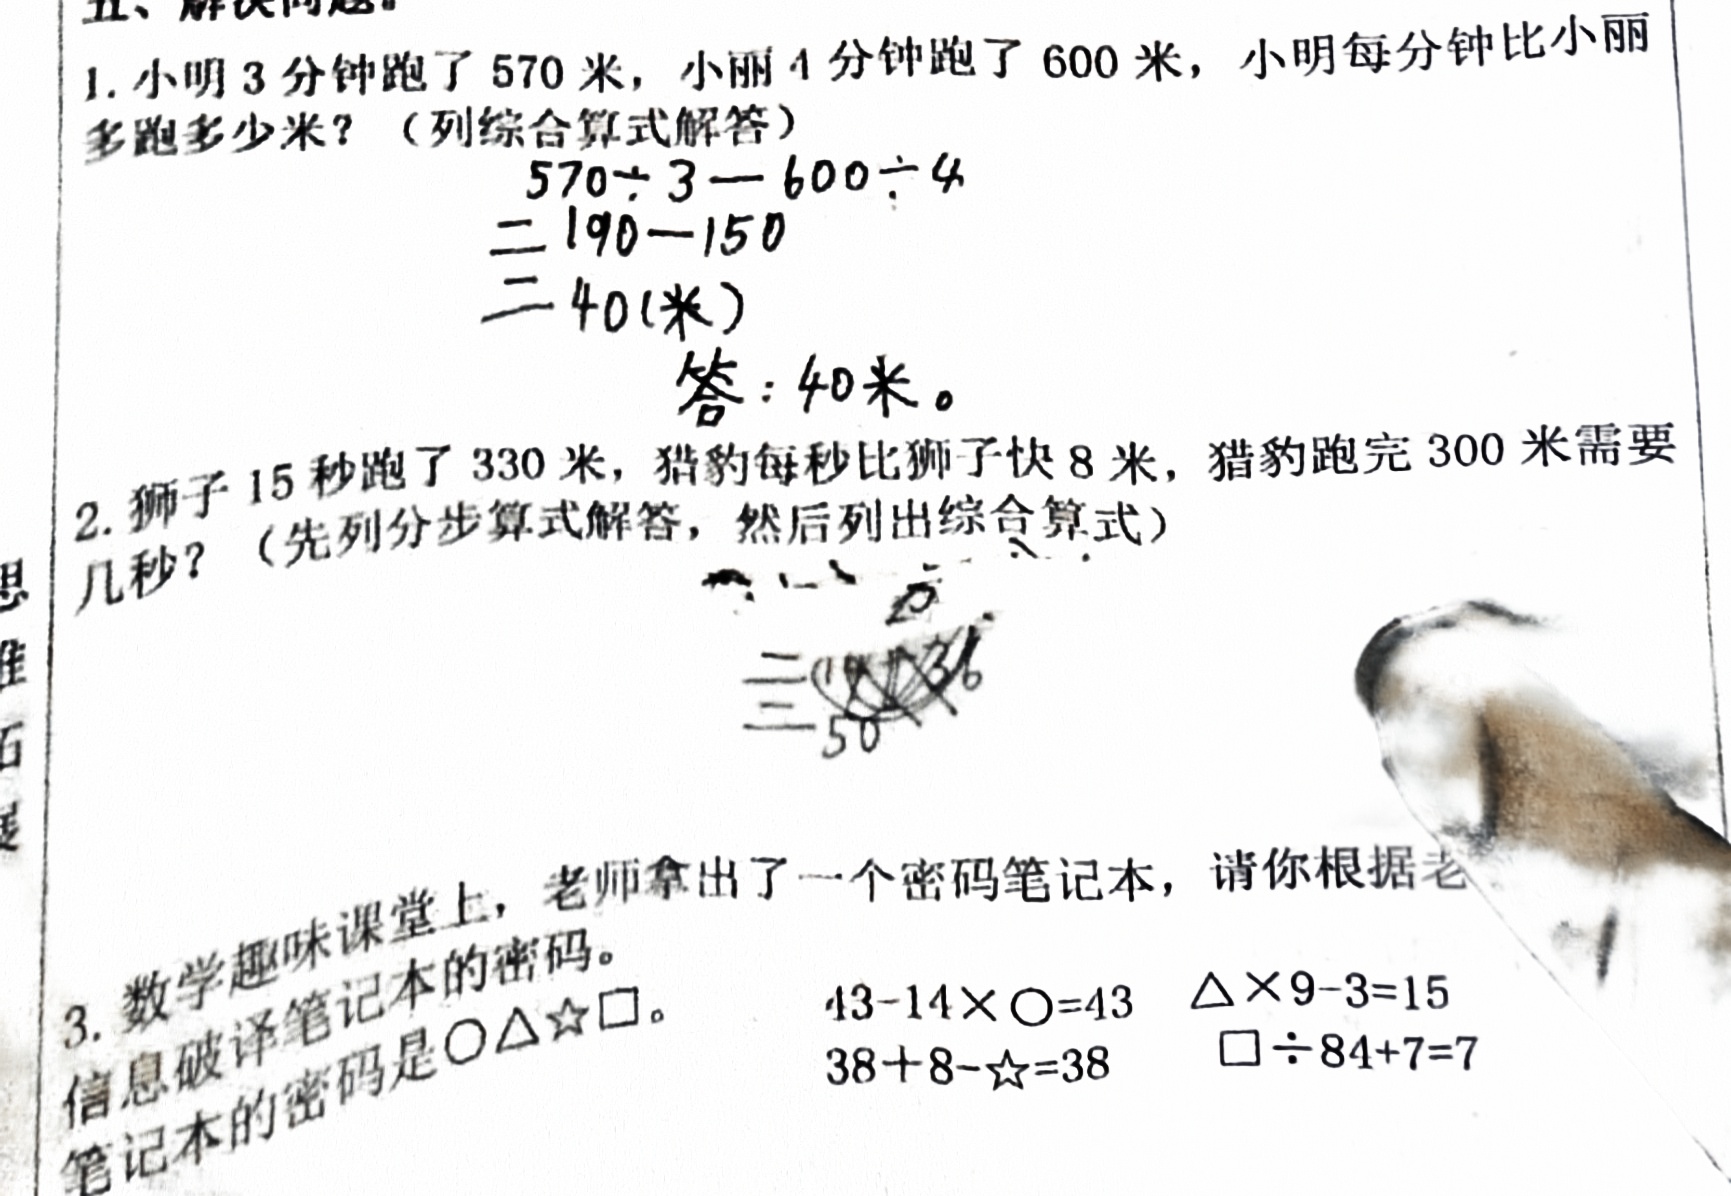 五、解决问题。
1. 小明 3 分钟跑了 570 米，小丽 4 分钟跑了 600 米，小明每分钟比小丽
多跑多少米？（列综合算式解答）
570÷3－600÷4
=190－150
=40(米)
答：40米。
2. 狮子 15 秒跑了 330 米，猎豹每秒比狮子快 8 米，猎豹跑完 300 米需要
几秒？（先列分步算式解答，然后列出综合算式）
=
36
=50
3. 数学趣味课堂上，老师拿出了一个密码笔记本，请你根据老
信息破译笔记本的密码。
笔记本的密码是○△☆□。
43-14×○=43 △×9-3=15
38+8-☆=38 □÷84+7=7
思
维
拓
展